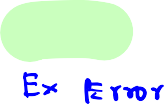 Ex Error